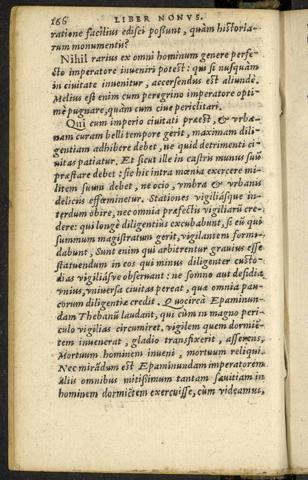 166 LIBER NONVS.
ratione facilius edisci possunt, quàm historia-
rum monumentis?
Nihil rarius ex omni hominum genere perfe-
cto imperatore inueniri potest: qui si nusquàm
in ciuitate inuenitur, accersendus est aliunde.
Melius est enim cum peregrino imperatore opti-
mè pugnare, quàm cum ciue periclitari.
Qui cum imperio ciuitati præest, & vrbæ-
nam curam belli tempore gerit, maximam dili-
gentiam adhibere debet, ne quid detrimenti ci-
uitas patiatur. Et sicut ille in castris munus suũ
præstare debet: sic hic intra mœnia exercere mi-
litem suum debet, ne ocio, vmbra & vrbanis
deliciis effœminetur. Stationes vigiliásque in-
terdum obire, nec omnia præfectis vigiliarũ cre-
dere: qui longè diligentius excubabunt, si eũ qui
summum magistratum gerit, vigilantem formi-
dabunt, Sunt enim qui arbitrentur grauius esse
statuendum in eos qui minus diligenter custo-
dias vigiliásve obseruant: ne somno aut desidia
vnius, vniuersa ciuitas pereat, quæ omnia pau-
corum diligentiæ credit. Quocircà Epaminun-
dam Thebanũ laudant, qui cùm in magno peri-
culo vigilias circumiret, vigilem quem dormiẽ-
tem inuenerat, gladio transfixerit, asserens,
Mortuum hominem inueni, mortuum reliqui.
Nec mirãdum est Epaminundam imperatorem
aliis omnibus mitissimum tantam sæuitiam in
hominem dormiẽtem exercuisse, cùm videamus,